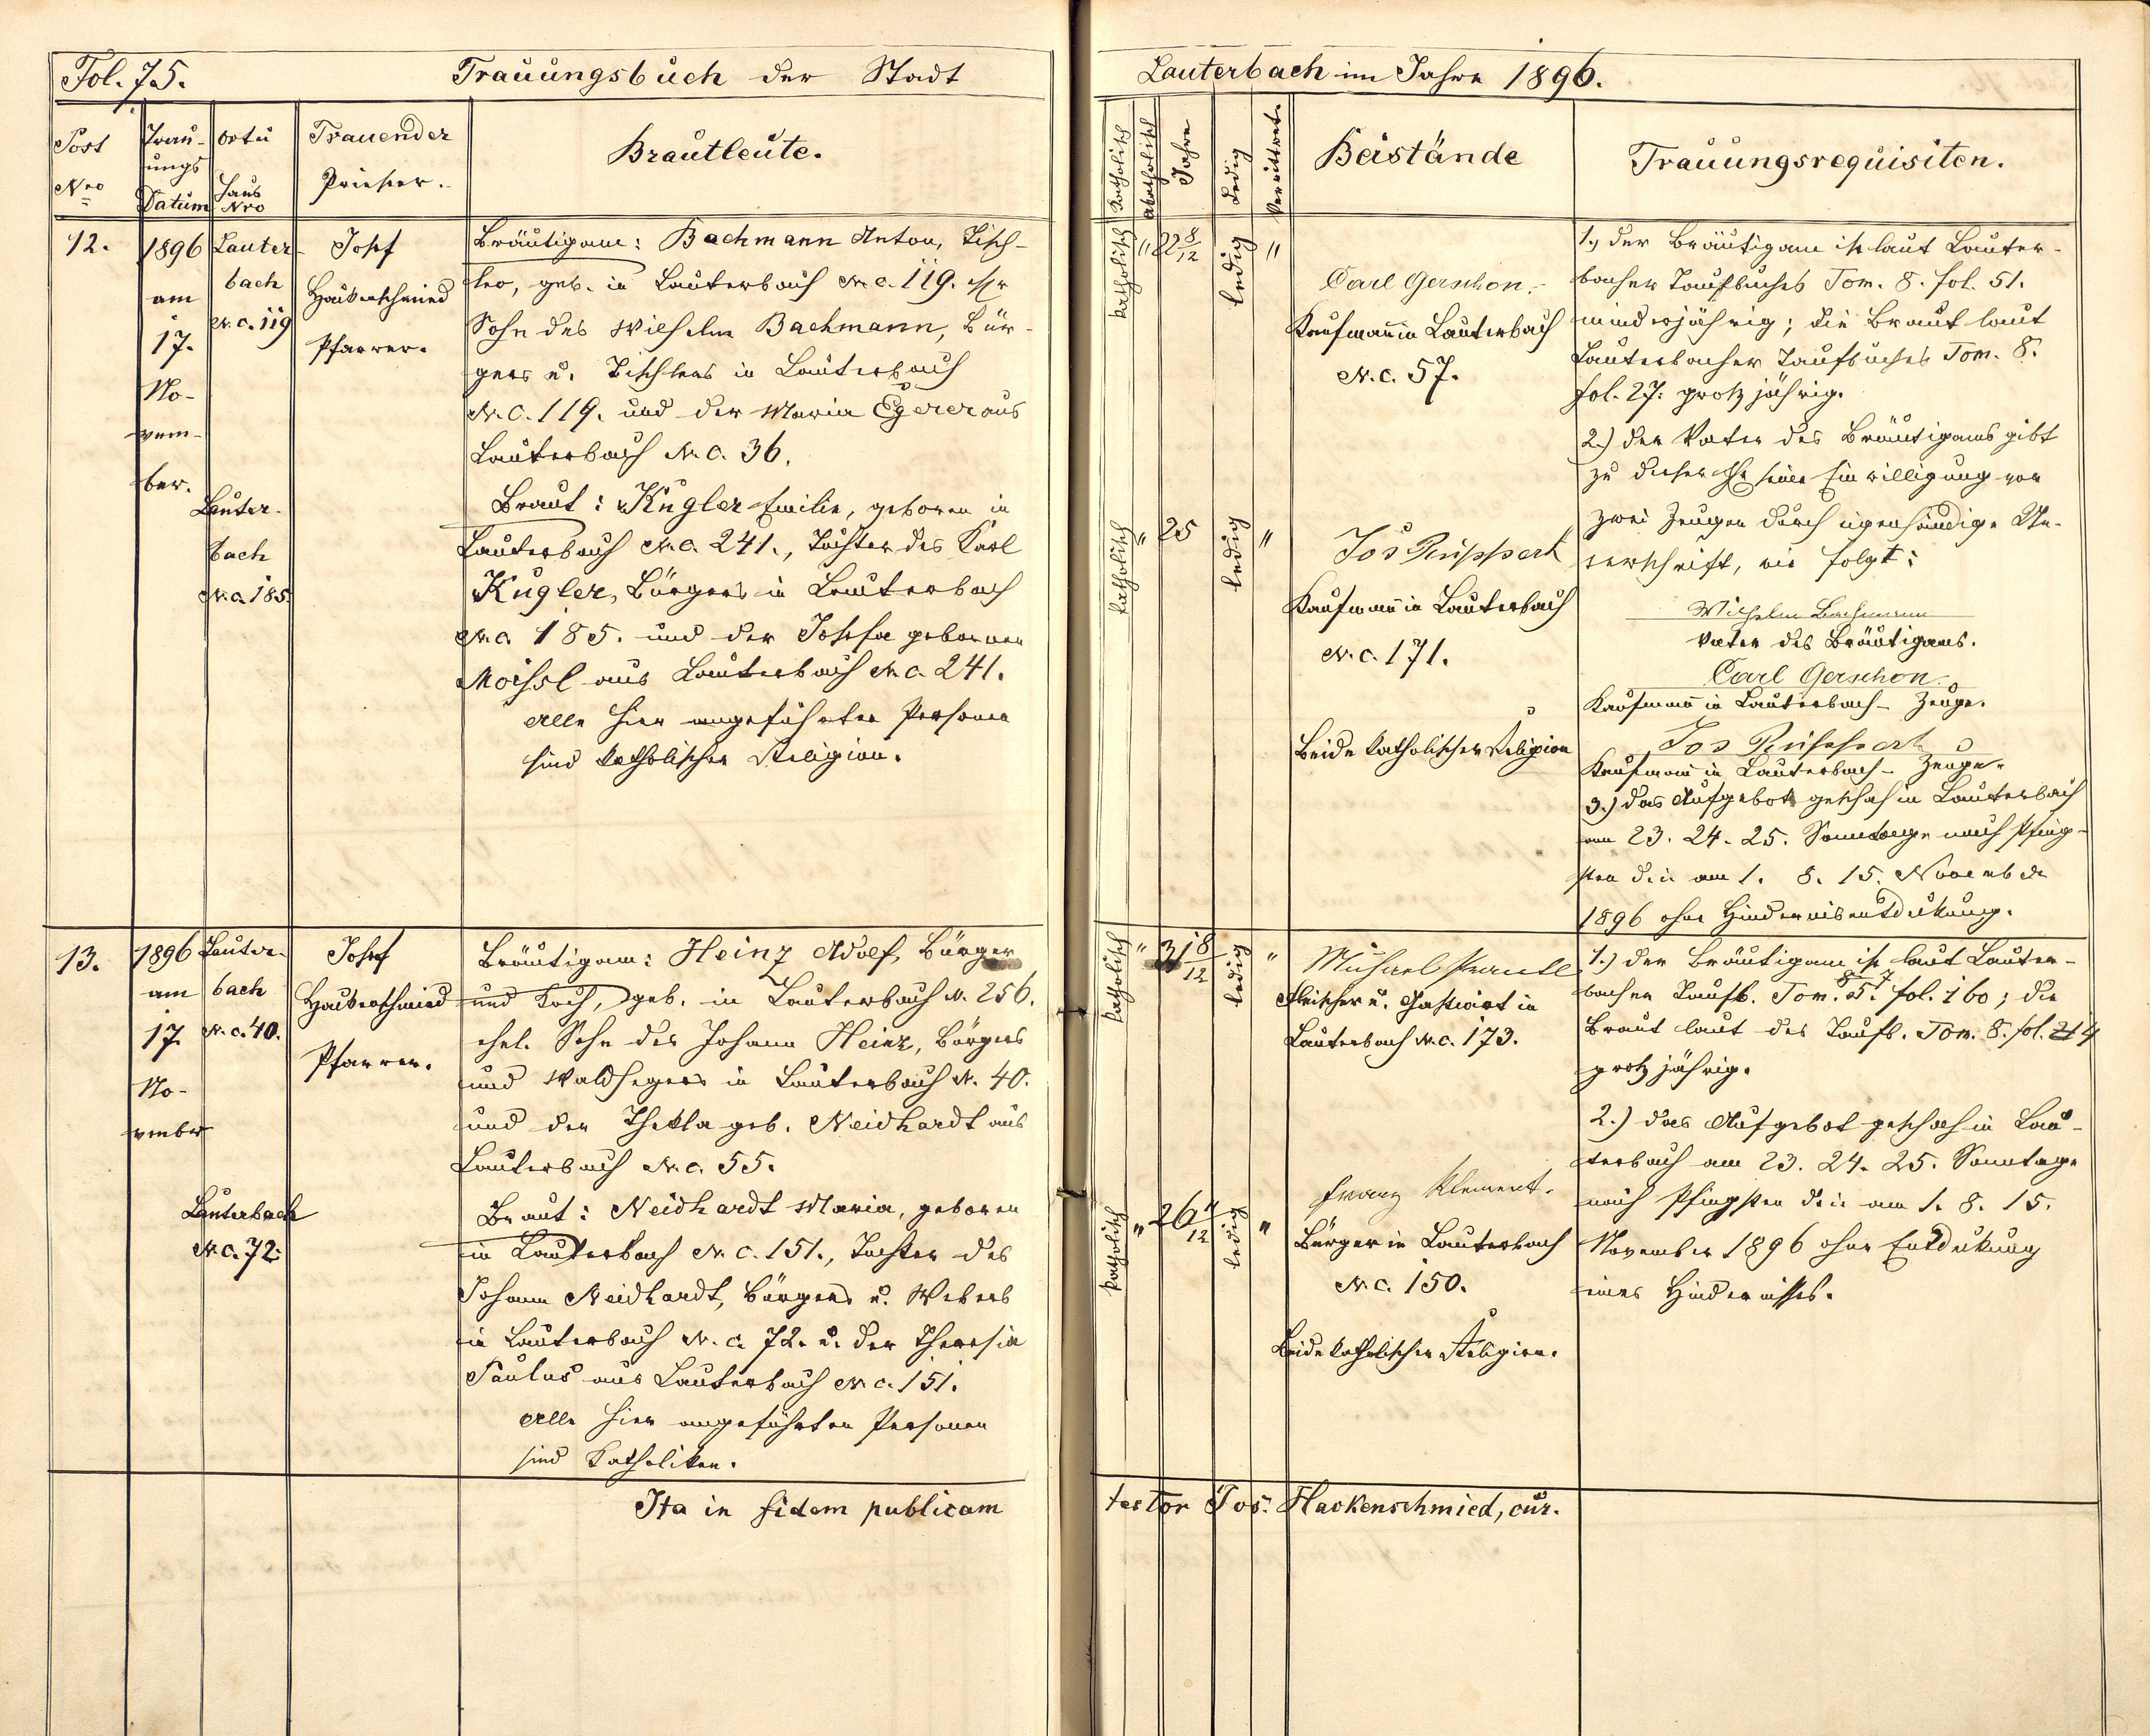 Fol. 75.
Trauungsbuch der Stadt
Lauterbach im Jahre 1896.
Post
Nro
Trau-
ungs
Datum
Ort u
Haus
Nro
Trauender
Priester.
Brautleute.
katholisch
akatholisch
Jahre
ledig
verwittwet.
Beistände
Trauungsrequisiten.
12.
1896
am
17.
No-
vem-
ber.
Lauter-
bach
N.C. 119
Lauter-
bach
N.C. 185.
Josef
Hackenschmied
Pfarrer.
Bräutigam: Bachmann Anton, Tisch-
ler, geb. in Lauterbach N.C. 119. ehl.
Sohn des Wilhelm Bachmann, Bür-
gers u. Tischlers in Lauterbach
N.C. 119. und der Maria Egerer aus
Lauterbach N.C. 36.
Braut: Kugler Emilie, geboren in
Lauterbach N.C. 241., Tochter des Karl
Kugler, Bürgers in Lauterbach
N.C. 185. und der Josefa gebornen
Moissl aus Lauterbach N.C. 241.
Alle hier angeführten Personen
sind katholischer Religion.
katholisch
"
22 8/12
ledig
"
katholisch
"
25
ledig
"
Carl Gerschon.
Kaufmann in Lauterbach
N.C. 57.
Jos Ruppert
Kaufmann in Lauterbach
N.C. 171.
Beide katholischer Religion
1.) der Bräutigam ist laut Lauter-
bacher Taufbuches Tom. 8. fol. 51.
minderjährig; die Braut laut
Lauterbacher Taufbuches Tom. 8.
fol. 27. großjährig.
2.) der Vater des Bräutigams gibt
zu dieser Ehe seine Einwilligung vor
zwei Zeugen durch eigenhändige Un-
terschrift, wie folgt:
Wilhelm Bachmann
Vater des Bräutigams.
Carl Gerschon.
Kaufmann in Lauterbach – Zeuge.
Jos Ruppert
Kaufmann in Lauterbach – Zeuge.
3.) das Aufgebot geschah in Lauterbach
am 23. 24. 25. Sonntage nach Pfing-
sten d.i. am 1. 8. 15. November
1896 ohne Hindernisentdekung.
13.
1896
am
17.
No-
vember
Lauter-
bach
N.C. 40.
Lauterbach
N.C. 72.
Josef
Hackenschmied
Pfarrer.
Bräutigam: Heinz Adolf, Bürger
und Koch, geb. in Lauterbach N. 256.
ehel. Sohn des Johann Heinz, Bürgers
und Waldhegers in Lauterbach N. 40.
und der Thekla geb. Neidhardt aus
Lauterbach N.C. 55.
Braut: Neidhardt Maria, geboren
in Lauterbach N.C. 151., Tochter des
Johann Neidhardt, Bürgers u. Webers
in Lauterbach N.C. 72. u. der Theresia
Paulus aus Lauterbach N.C. 151.
Alle hier angeführten Personen
sind Katholiken.
katholisch
"
31 8/12
ledig
"
katholisch
"
26 4/12
ledig
"
Michael
Fleischer u. Gastwirt in
Lauterbach N.C. 173.
Franz Klement.
Bürger in Lauterbach
N.C. 150.
Beide katholischer Religion.
1.) der Bräutigam ist laut Lauter-
bacher Taufb. Tom. fol. 160; die
Braut laut des Taufb. Tom. 8. fol.
großjährig.
2.) das Aufgebot geschah in Lau-
terbach am 23. 24. 25. Sonntage
nach Pfingsten d.i. am 1. 8. 15.
November 1896 ohne Entdekung
eines Hindernisses.
Ita in fidem publicam
testor Jos. Hackenschmied, cur.